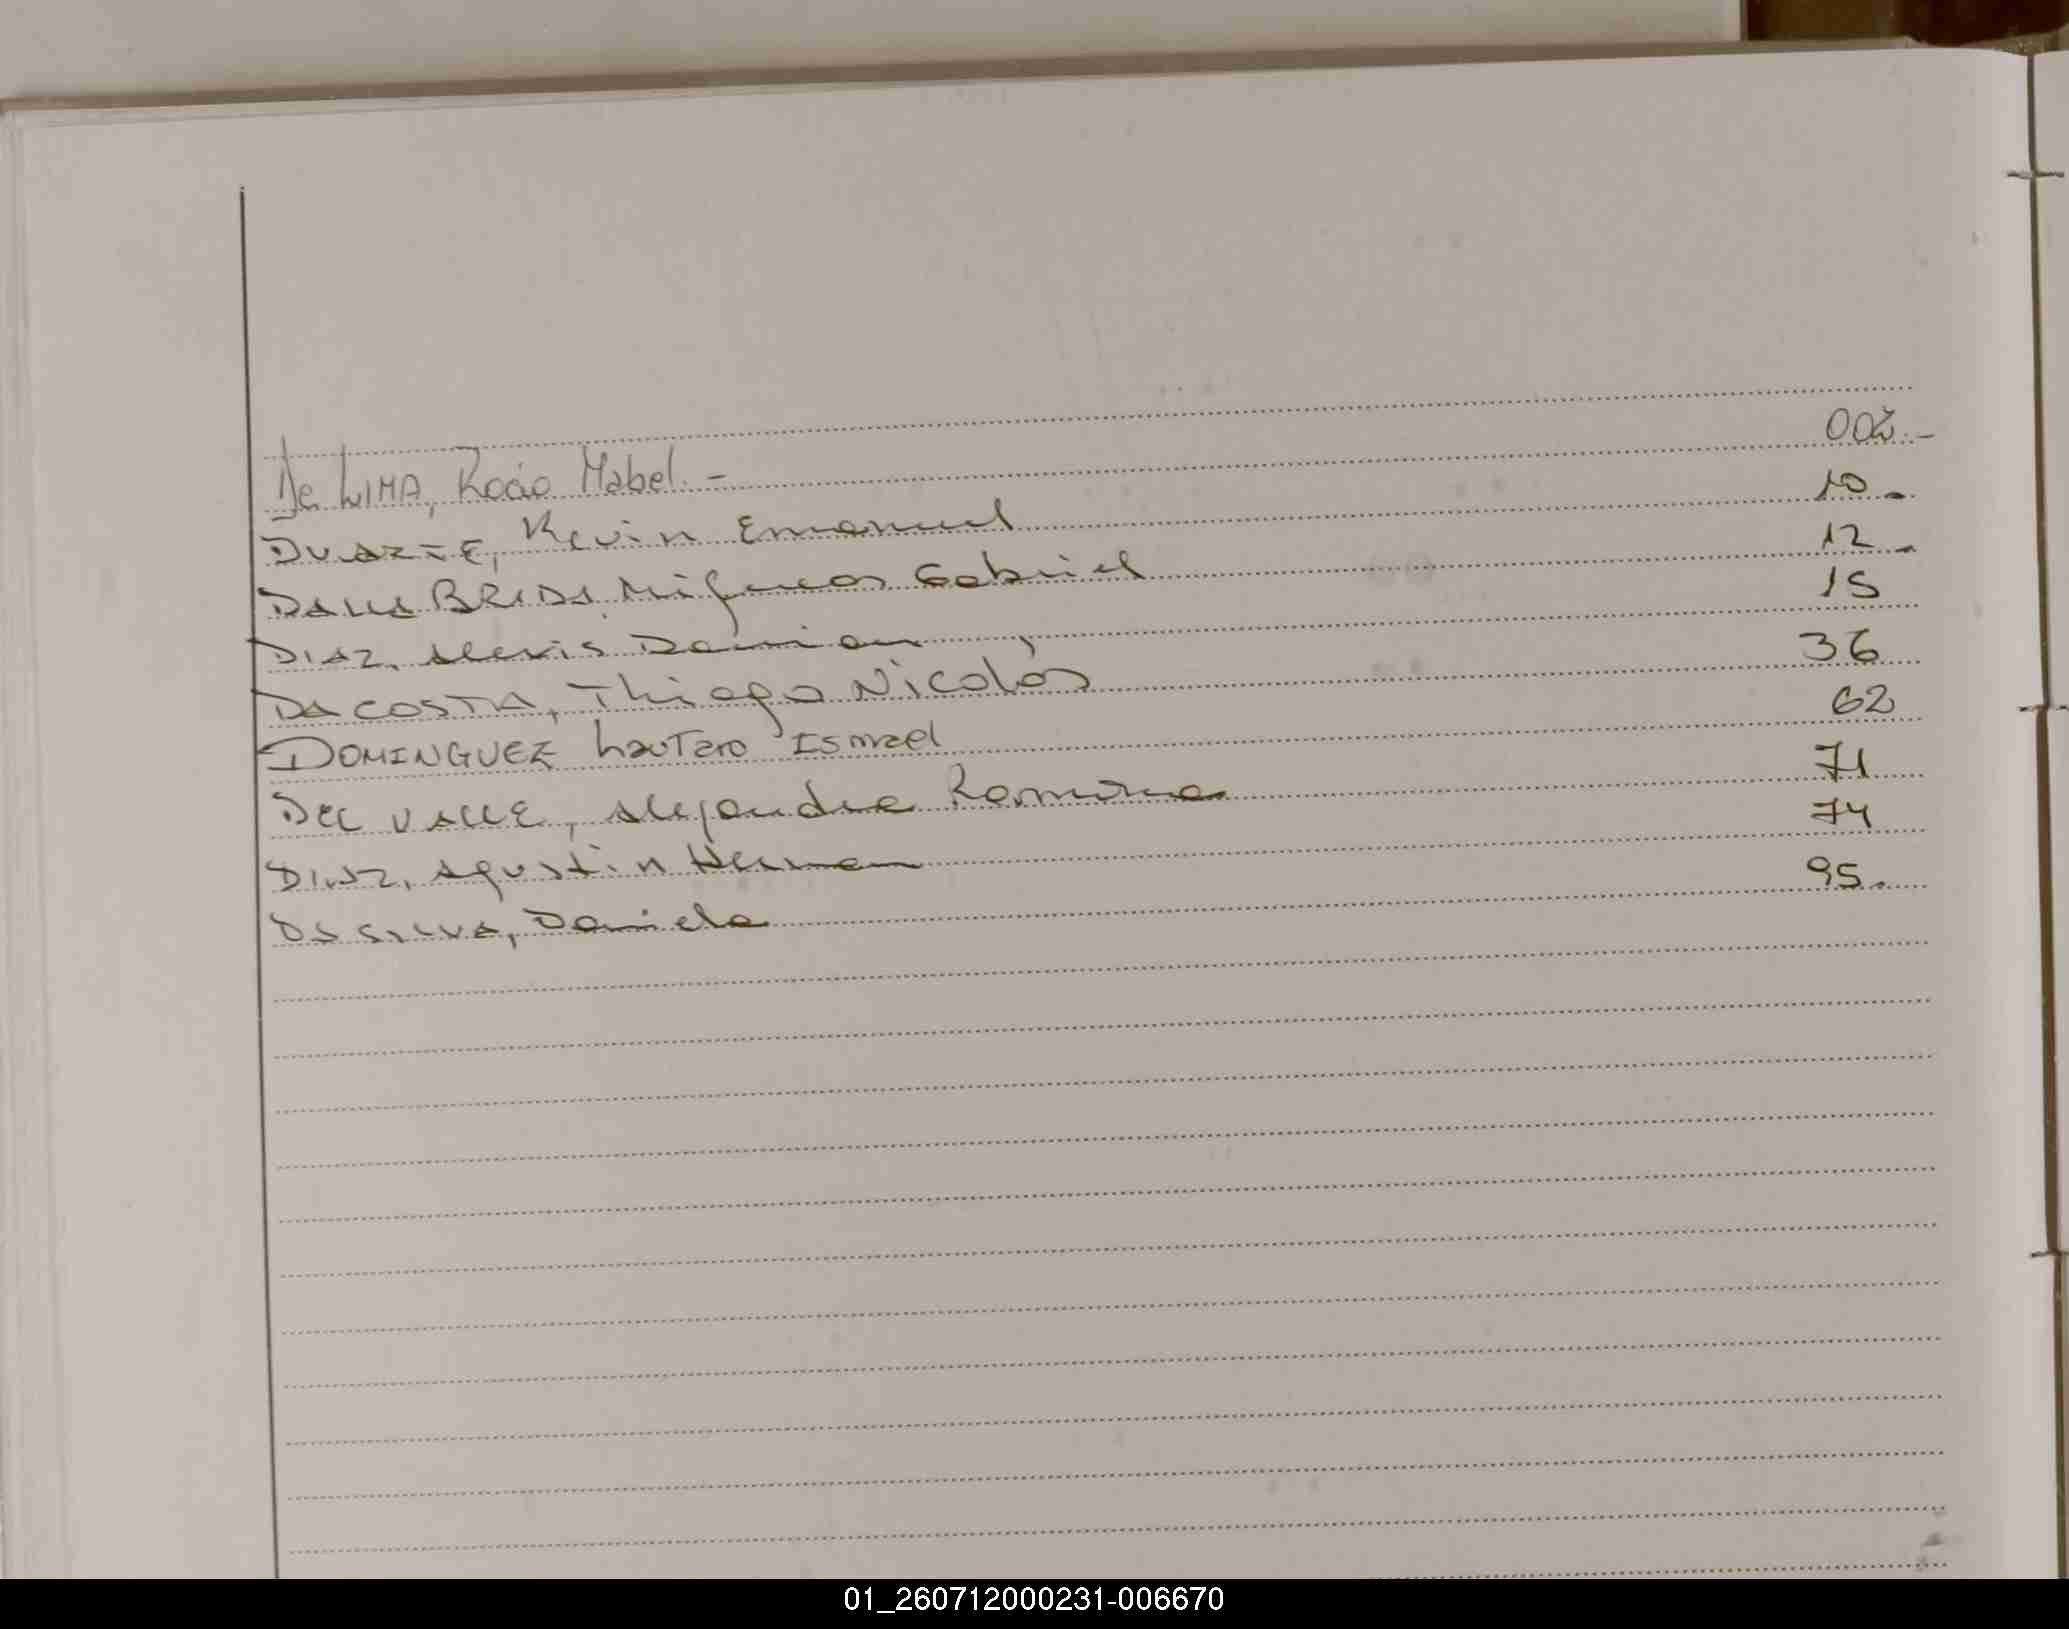 De LIMA, Rocío Mabel.- 002.-
DUARTE, Kevin Emanuel 10.-
DALLA BRIDA, Milgueas Gabriel 12.-
DIAZ, Alexis Damian 15
DA COSTA, Thiago Nicolás 36
DOMINGUEZ Lautaro Ismael 62
DEL VALLE, Alejandra Romina 71
DIAZ, Agustin Hernan 74
DA SILVA, Daniela 95.
01_260712000231-006670